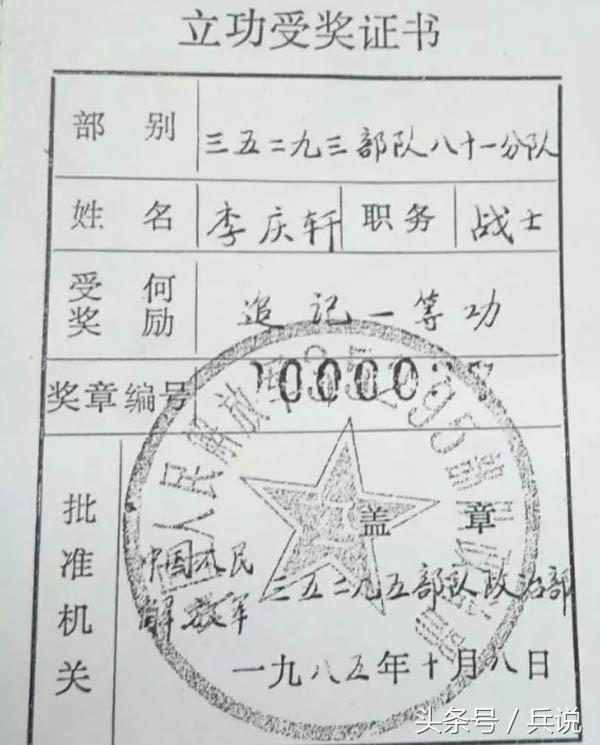 立功受奖证书
部别 三五二九三部队八十一分队
姓名 李庆轩 职务 战士
受何奖励 追记一等功
奖章编号 00000
批准机关 盖章
中国人民解放军 三五二九五部队政治部
一九八五年十月八日
头条号 / 兵说